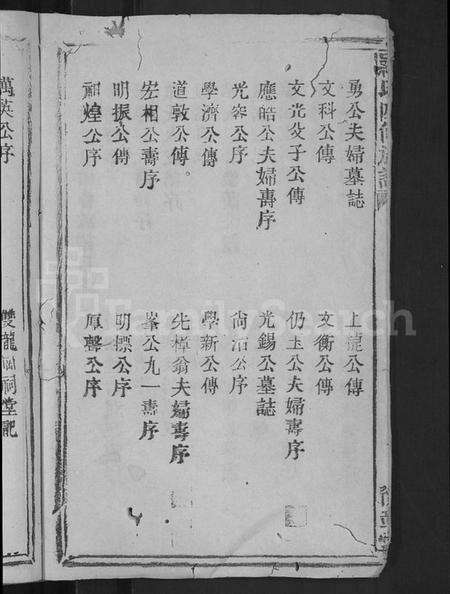 勇公夫婦墓誌
上龍公傳
文科公傳
文衡公傳
文光父子公傳
仍玉公夫婦壽序
應皓公夫婦壽序
光錫公墓誌
光容公序
尙治公序
學濟公傳
學新公傳
道敦公傳。
先樟翁夫婦壽序
宏相公壽序
峯公九一壽序
明振公傳
明標公序
祠煌公序
厚馨公序
萬英公序
雙龍 祠堂記